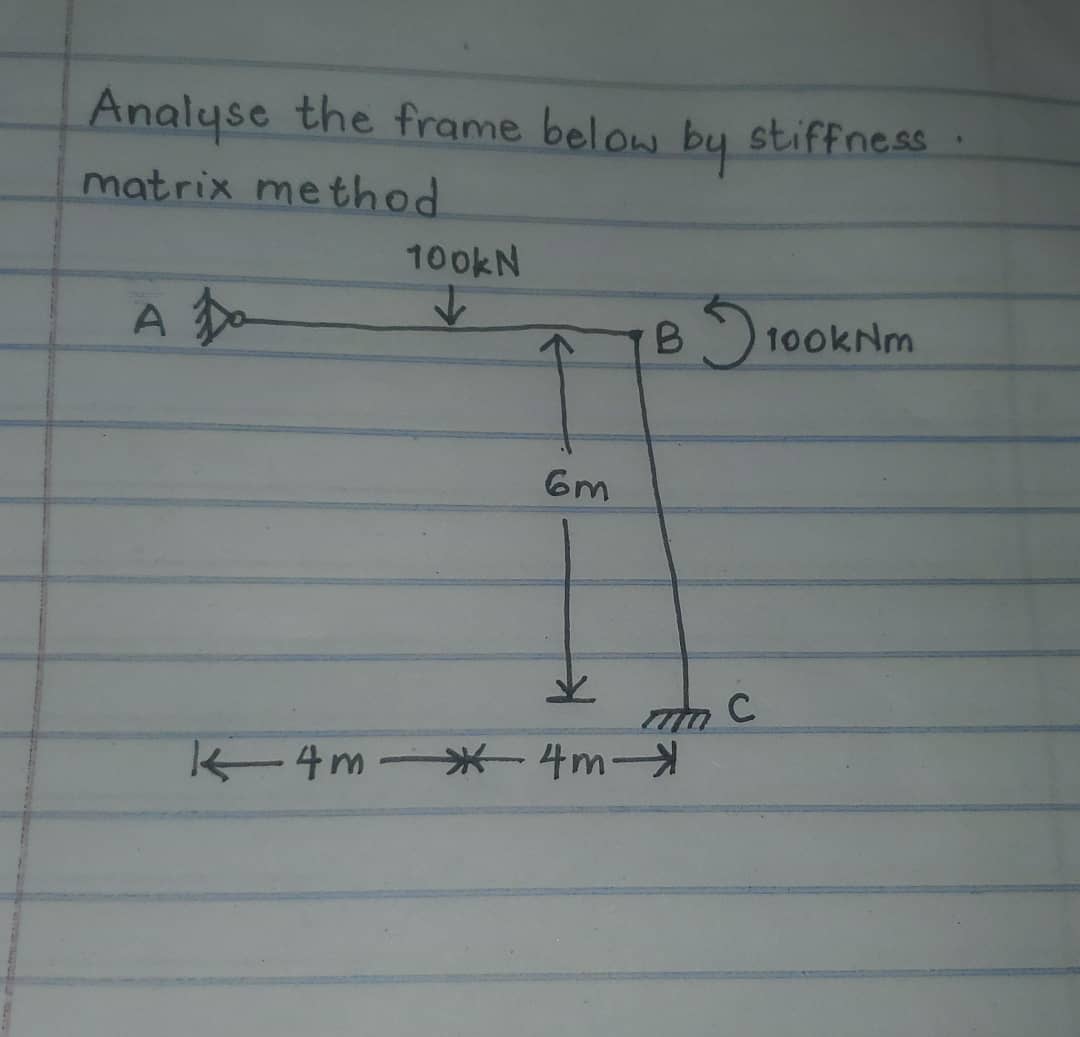 Analyse the frame below by stiffness.
matrix method
100kN
A
B 100kNm
6m
C
4m 4m